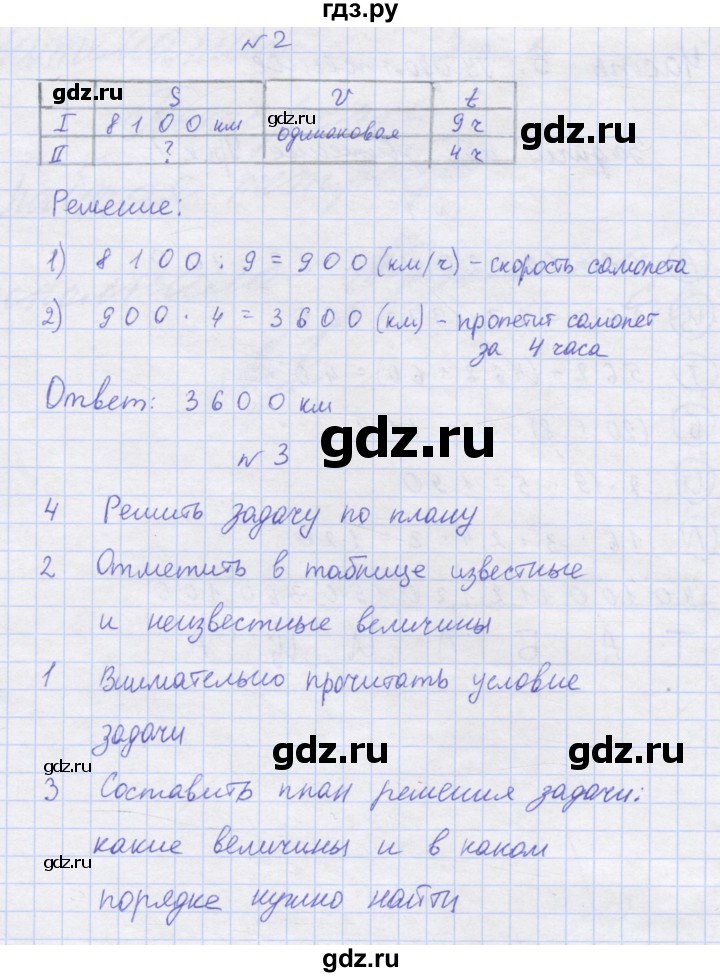 гдз.ру
№ 2
gdz.ru S V t
I 8100 км gdz.ru одинаковая 9 ч
II ? 4 ч
Решение:
1) 8100 : 9 = 900 (км/ч) – скорость самолета
2) 900 · 4 = 3600 (км) – пролетит самолет
за 4 часа
Ответ: 3600 км
gdz.ru
№ 3
4 Решить задачу по плану
gdz.ru
2 Отметить в таблице известные
и неизвестные величины
1 Внимательно прочитать условие
задачи
gdz.ru gdz.ru
gdz.ru
3 Составить план решения задачи:
какие величины и в каком
gdz.ru
порядке нужно найти
gdz.ru